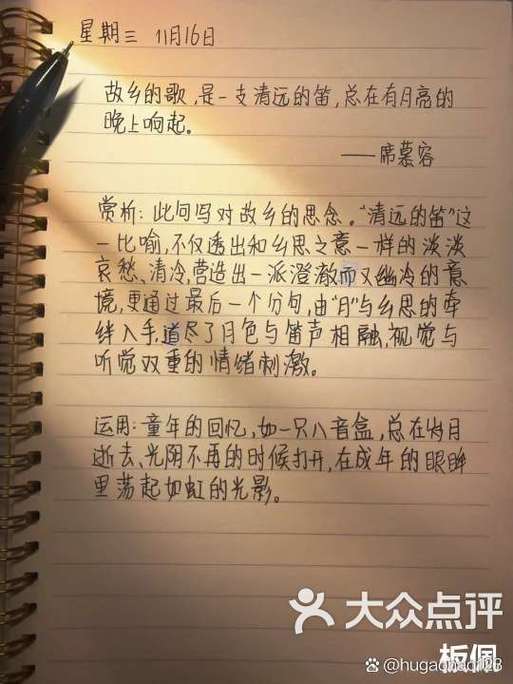 星期三 11月16日
故乡的歌,是一支清远的笛,总在有月亮的
晚上响起。
——席慕容
赏析:此句写对故乡的思念。“清远的笛”这
一比喻,不仅透出和乡思之意一样的淡淡
哀愁、清冷,营造出一派澄澈而又幽冷的意
境,更通过最后一个分句,由“月”与乡思的牵
绊入手,道尽了月色与笛声相融,视觉与
听觉双重的情绪刺激。
运用:童年的回忆,如一只八音盒,总在岁月
逝去、光阴不再的时候打开,在成年的眼眸
里荡起如虹的光影。
大众点评
板佩